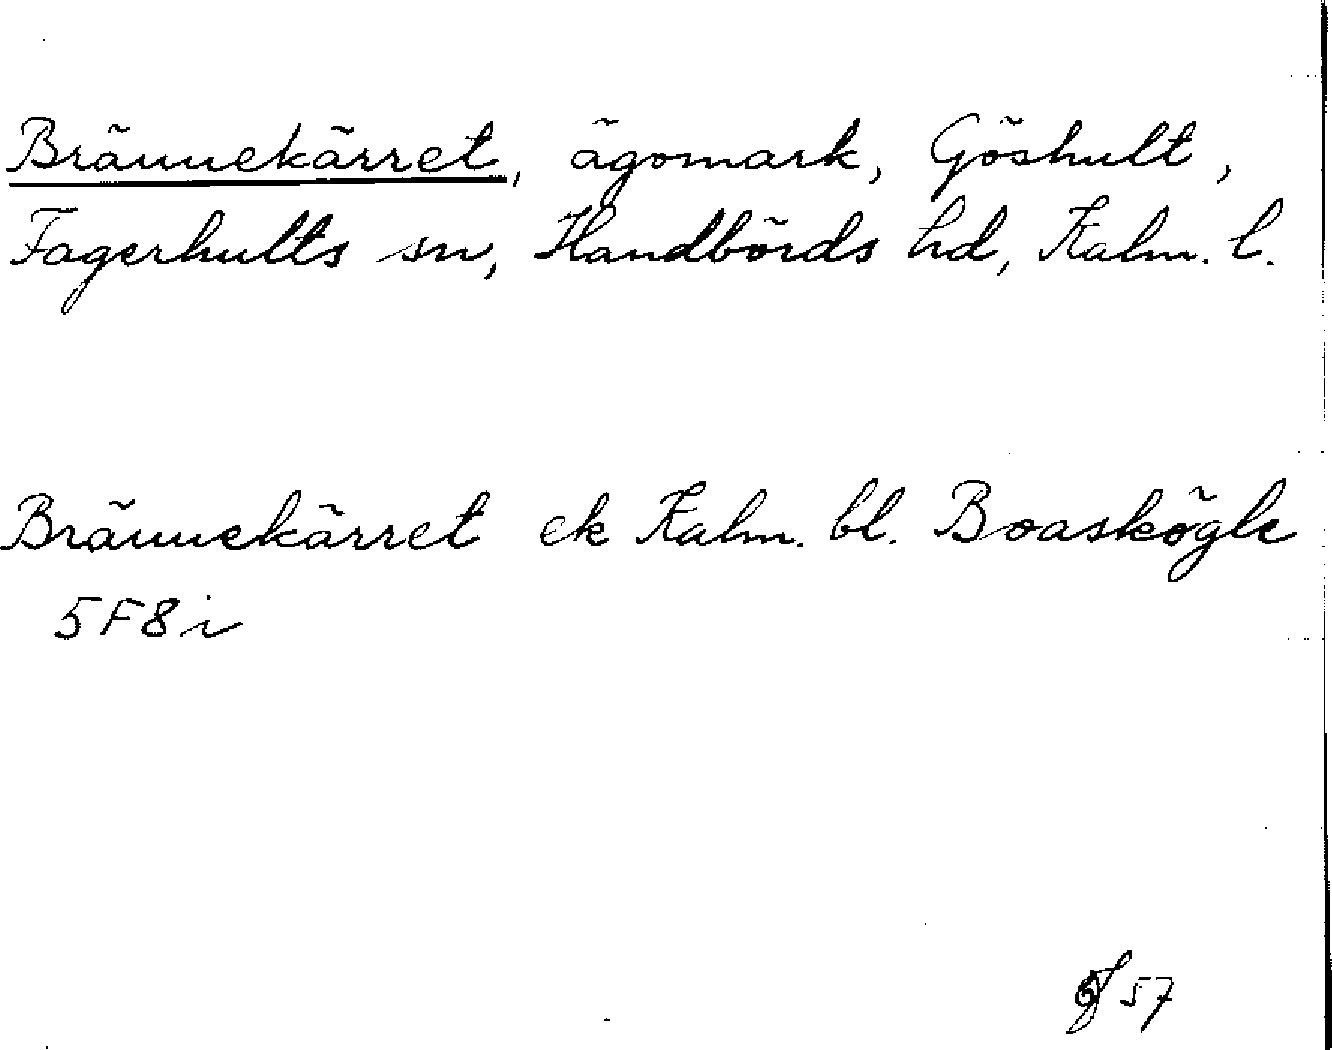 Brännekärret, ägomark, Göshult,
Fagerhults sn, Handbörds hd, Kalm. l.
Brännekärret ek Kalm. bl. Boaskögle
5F8i
57